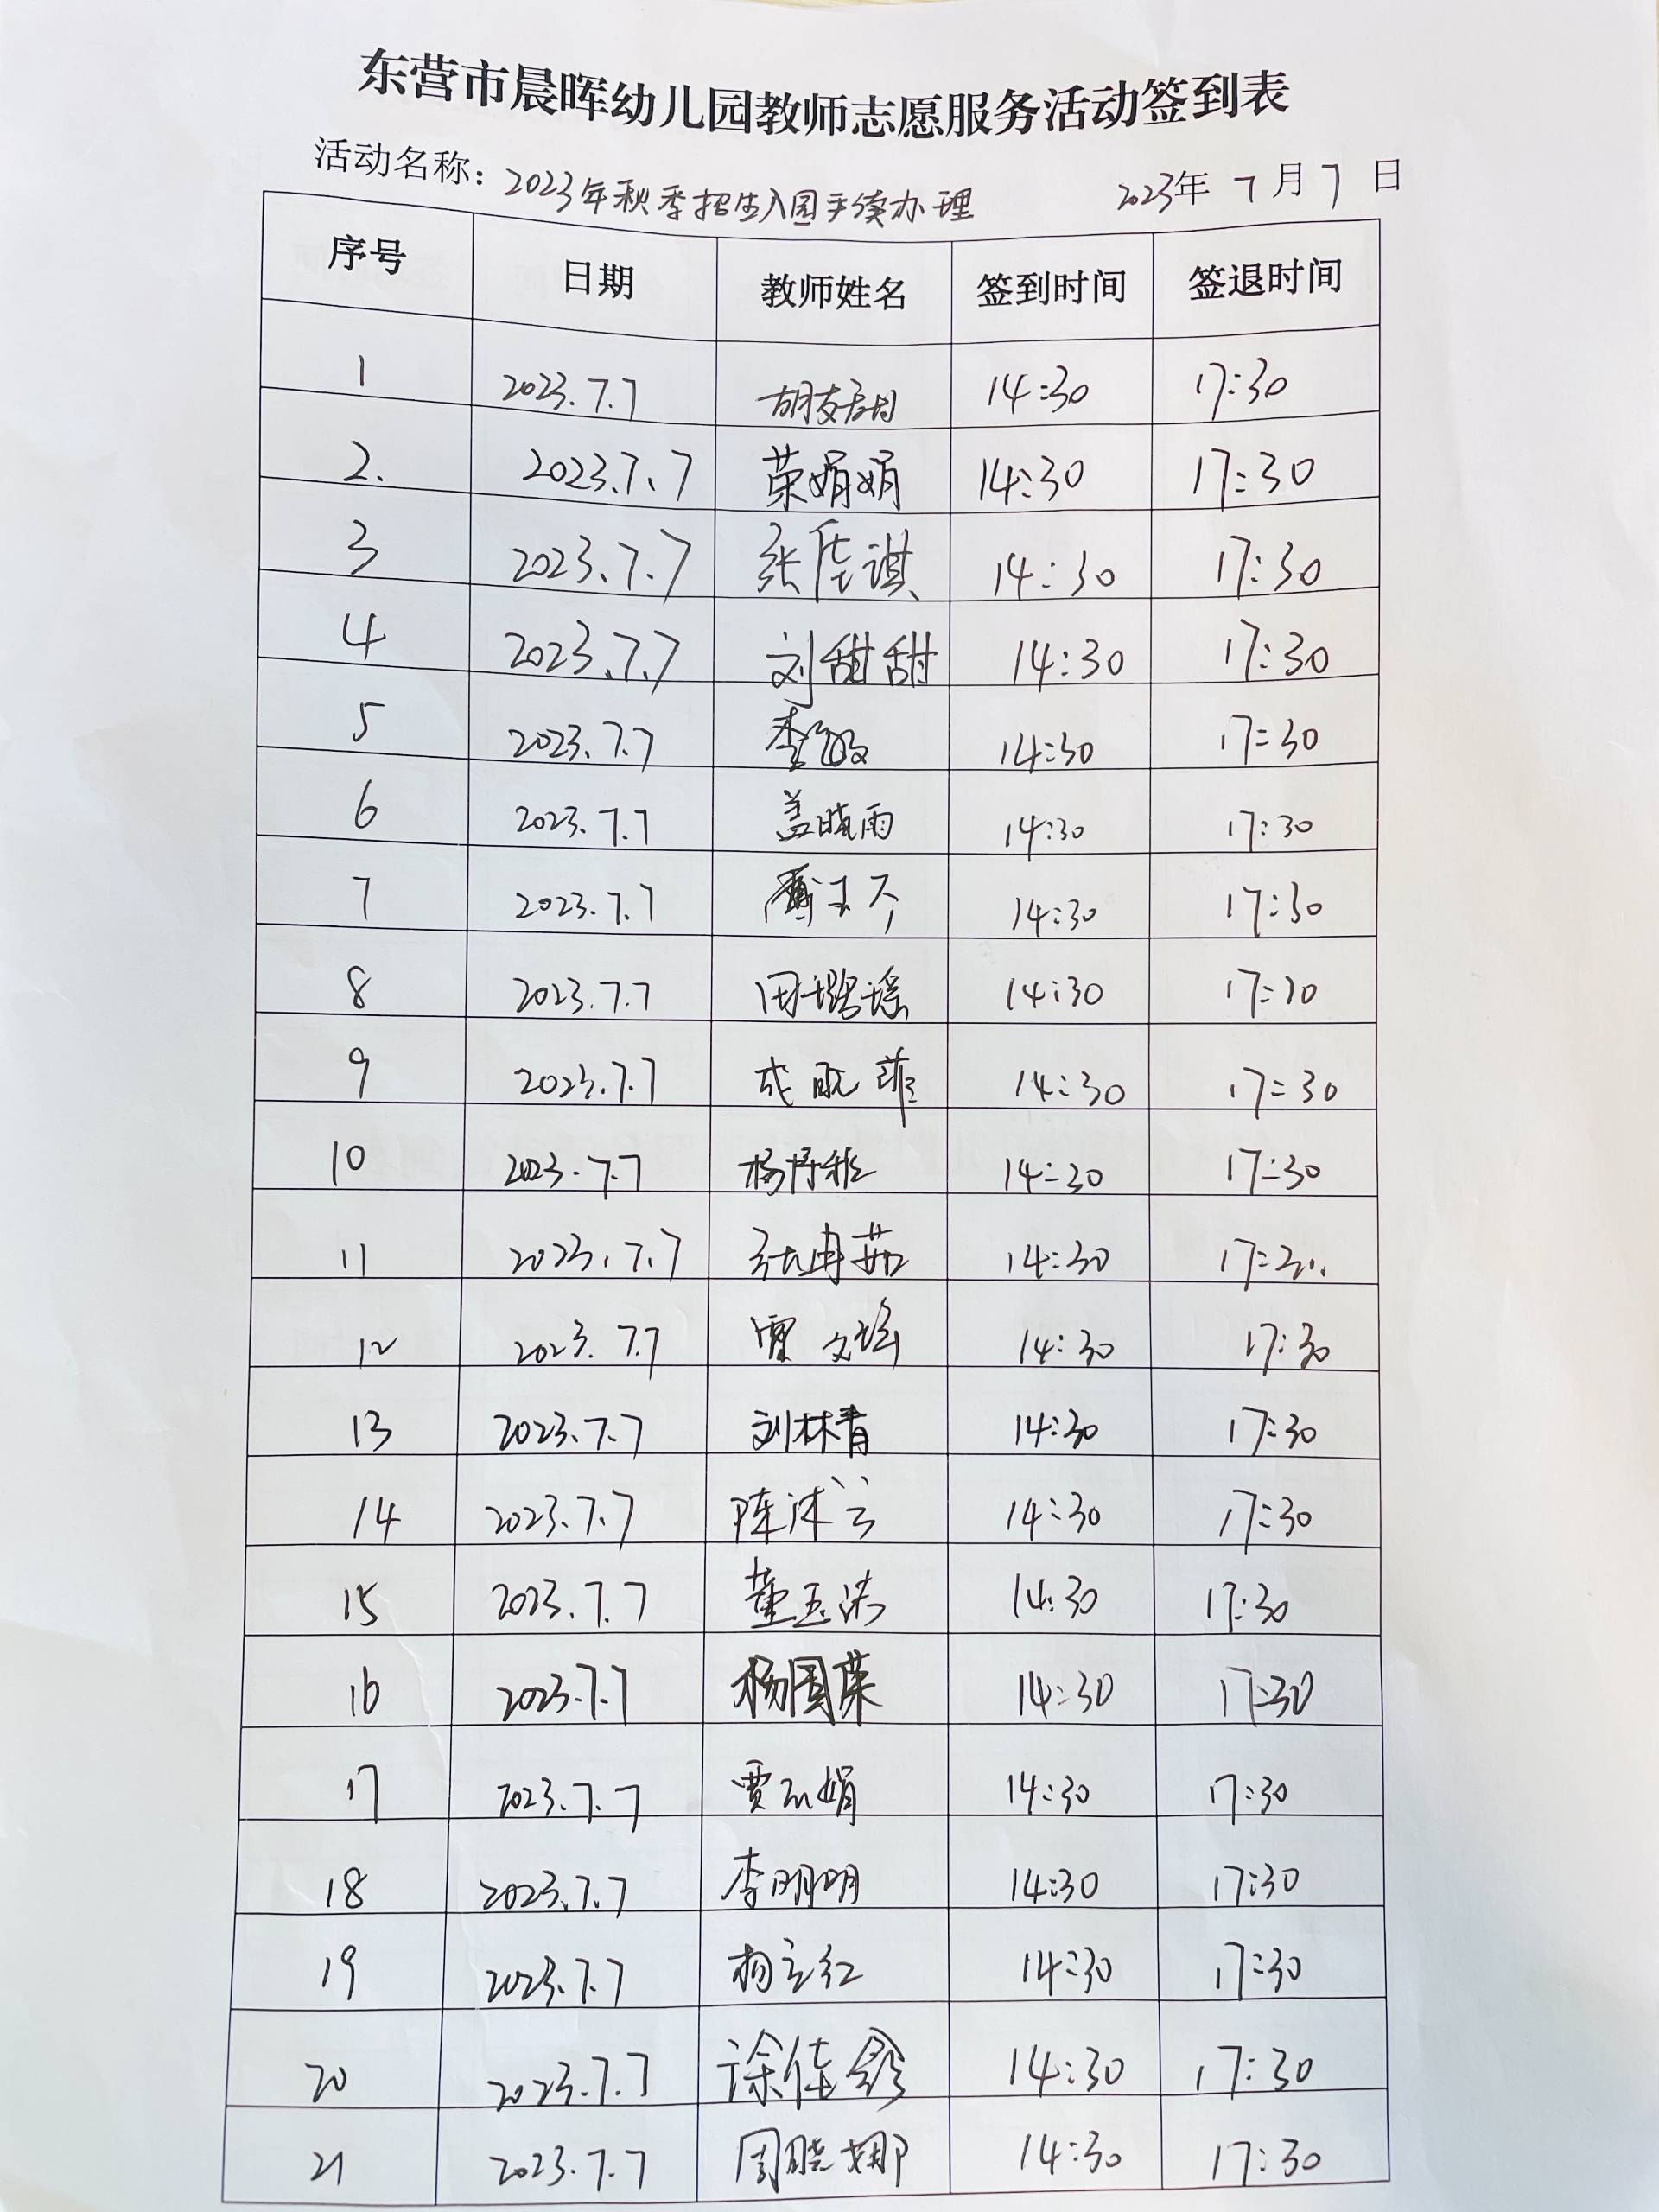 东营市晨晖幼儿园教师志愿服务活动签到表
活动名称：2023年秋季招生入园手续办理 2023年7月7日
序号 日期 教师姓名 签到时间 签退时间
1 2023.7.7 胡 14:30 17:30
2. 2023.7.7 荣娟娟 14:30 17:30
3 2023.7.7 张佳淇 14:30 17:30
4 2023.7.7 刘甜甜 14:30 17:30
5 2023.7.7 李敏 14:30 17:30
6 2023.7.7 盖晓雨 14:30 17:30
7 2023.7.7 14:30 17:30
8 2023.7.7 田璐瑶 14:30 17:30
9 2023.7.7 成 14:30 17:30
10 2023.7.7 杨 14:30 17:30
11 2023.7.7 张冉茹 14:30 17:30.
12 2023.7.7 贾文瑶 14:30 17:30
13 2023.7.7 刘林青 14:30 17:30
14 2023.7.7 陈沐云 14:30 17:30
15 2023.7.7 董玉洁 14:30 17:30
16 2023.7.7 杨国荣 14:30 17:30
17 2023.7.7 贾 娟 14:30 17:30
18 2023.7.7 李明明 14:30 17:30
19 2023.7.7 杨立红 14:30 17:30
20 2023.7.7 涂佳 14:30 17:30
21 2023.7.7 周晓娜 14:30 17:30